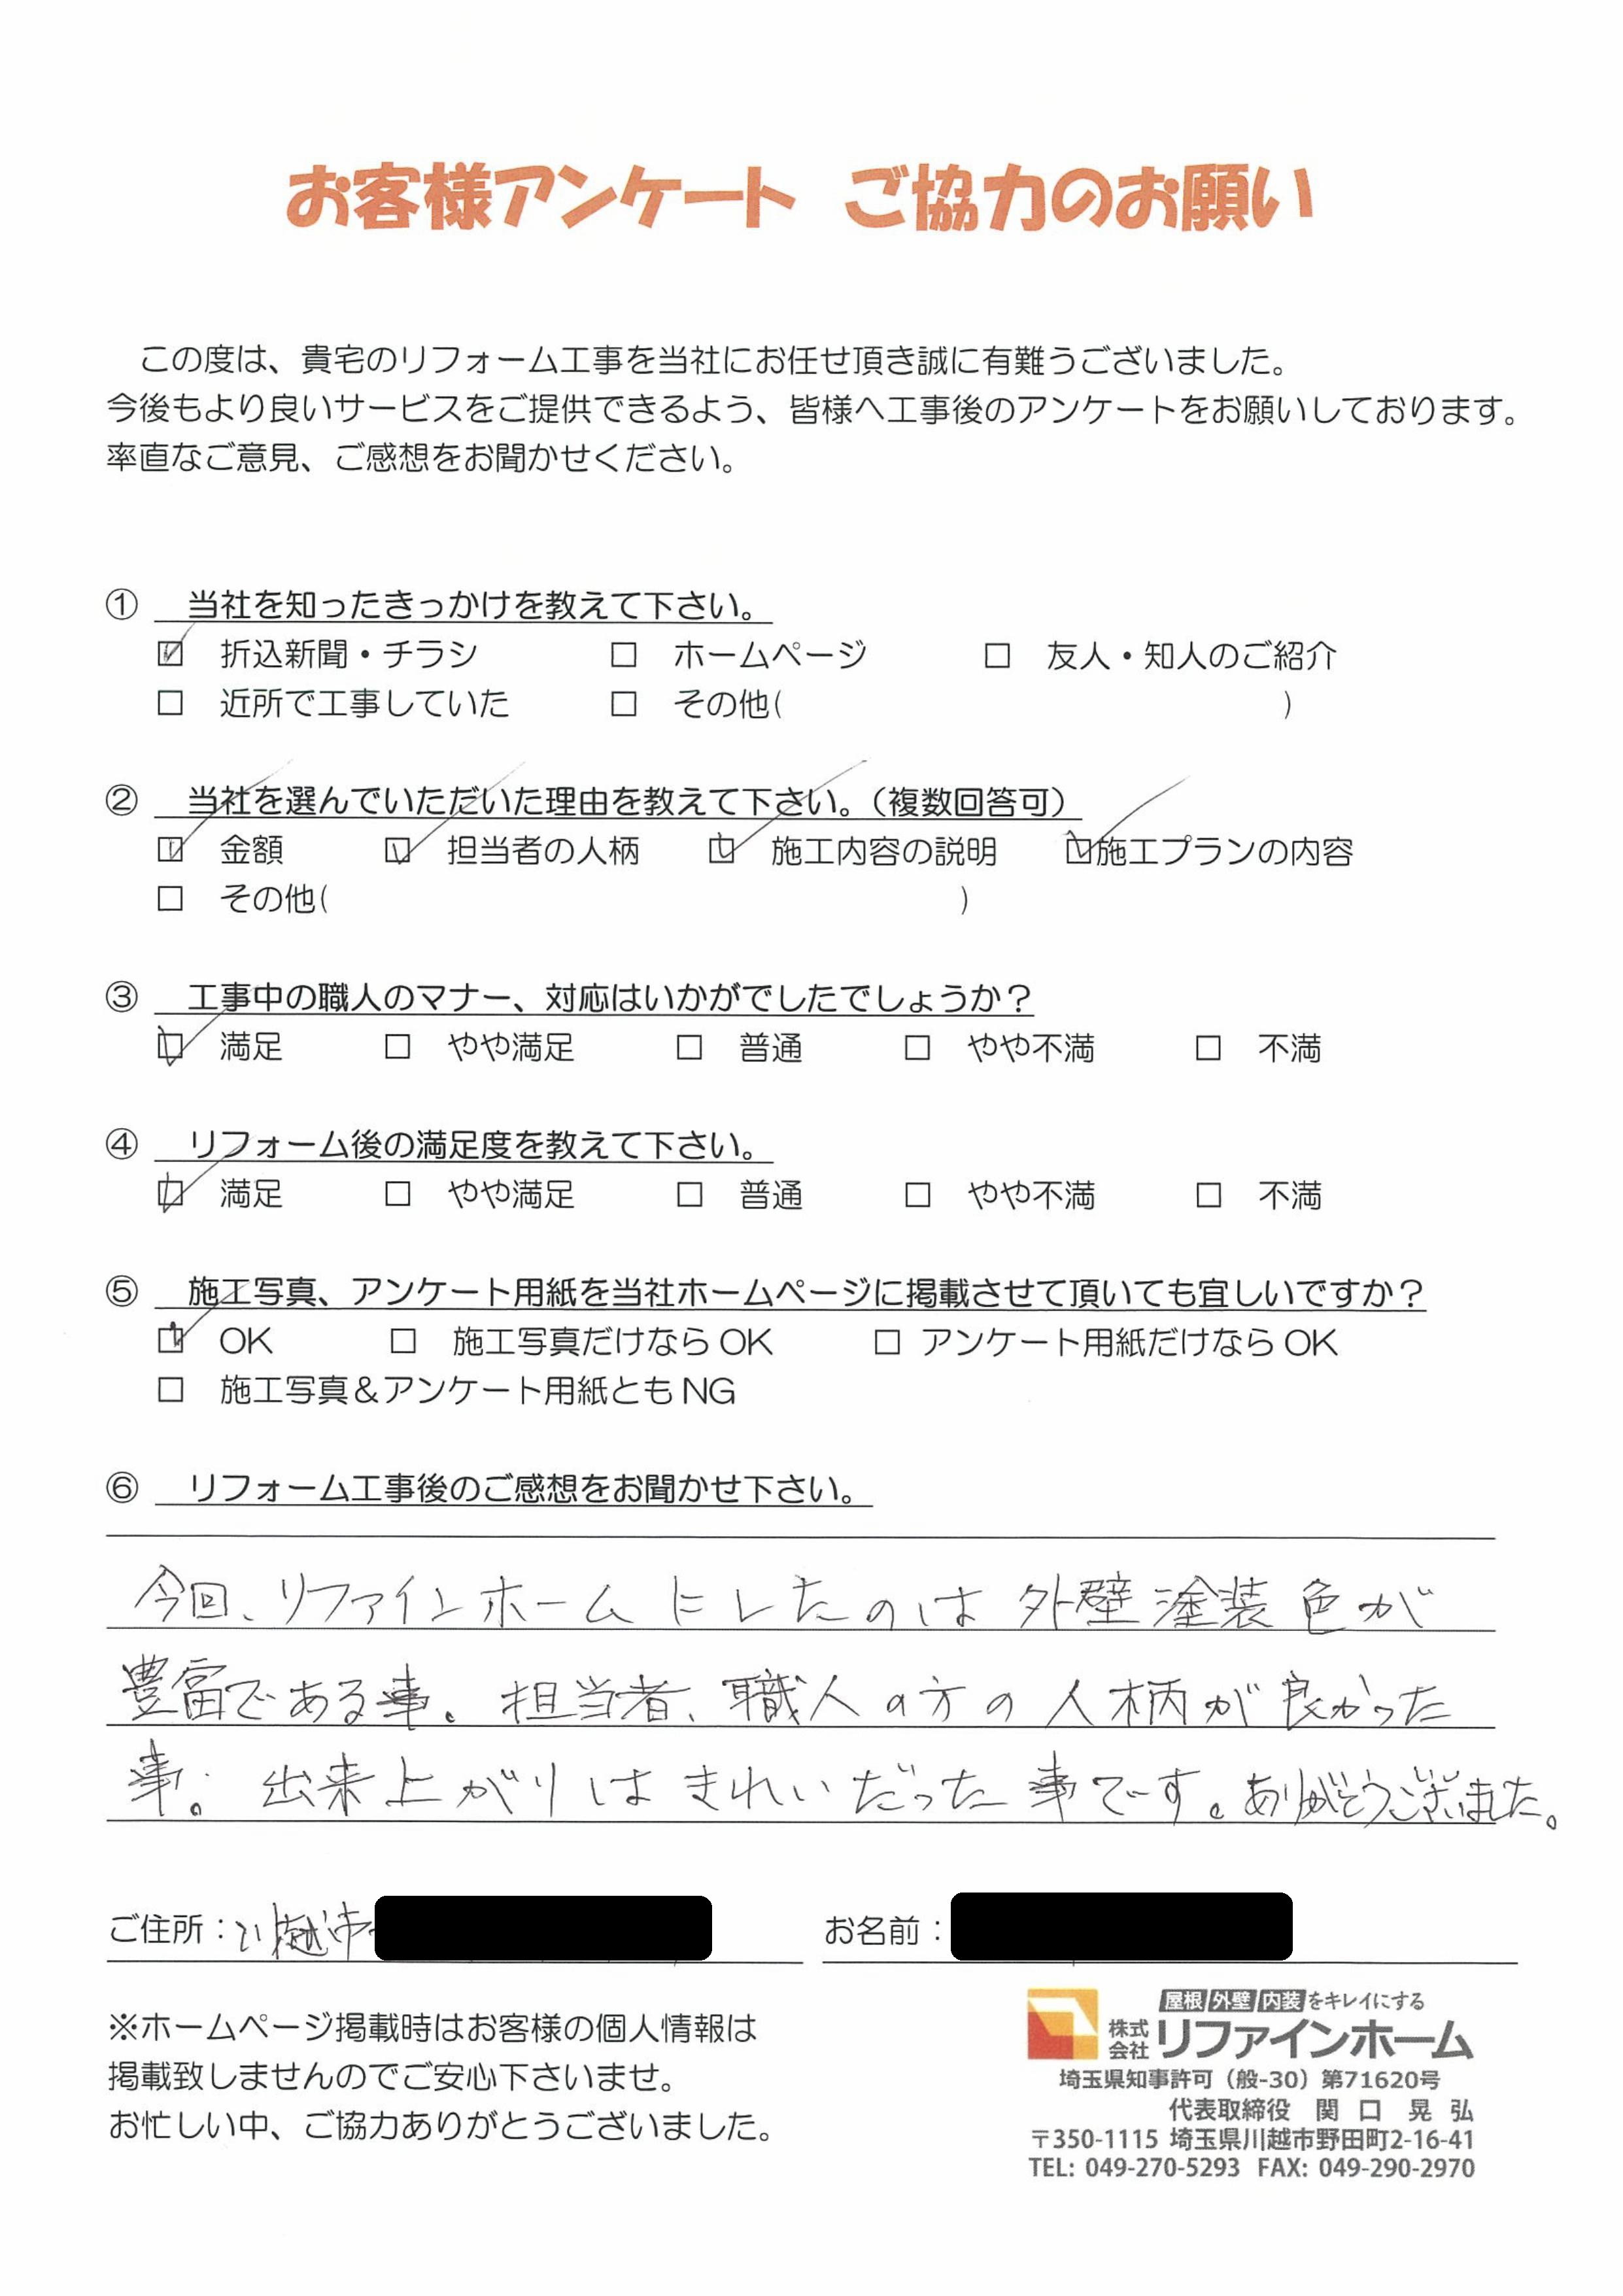 お客様アンケート ご協力のお願い
この度は、貴宅のリフォーム工事を当社にお任せ頂き誠に有難うございました。
今後もより良いサービスをご提供できるよう、皆様へ工事後のアンケートをお願いしております。
率直なご意見、ご感想をお聞かせください。
① 当社を知ったきっかけを教えて下さい。
☑ 折込新聞・チラシ □ ホームページ □ 友人・知人のご紹介
□ 近所で工事していた □ その他( )
② 当社を選んでいただいた理由を教えて下さい。（複数回答可）
☑ 金額 ☑ 担当者の人柄 ☑ 施工内容の説明 ☑施工プランの内容
□ その他( )
③ 工事中の職人のマナー、対応はいかがでしたでしょうか？
☑ 満足 □ やや満足 □ 普通 □ やや不満 □ 不満
④ リフォーム後の満足度を教えて下さい。
☑ 満足 □ やや満足 □ 普通 □ やや不満 □ 不満
⑤ 施工写真、アンケート用紙を当社ホームページに掲載させて頂いても宜しいですか？
☑ OK □ 施工写真だけなら OK □ アンケート用紙だけなら OK
□ 施工写真＆アンケート用紙とも NG
⑥ リフォーム工事後のご感想をお聞かせ下さい。
今回、リファインホームにしたのは外壁塗装色が
豊富である事。担当者、職人の方の人柄が良かった
事。出来上がりはきれいだった事です。ありがとうございました。
ご住所：川越市 お名前：
※ホームページ掲載時はお客様の個人情報は
掲載致しませんのでご安心下さいませ。
お忙しい中、ご協力ありがとうございました。
屋根 外壁 内装をキレイにする
株式会社 リファインホーム
埼玉県知事許可（般-30）第71620号
代表取締役 関口 晃弘
〒350-1115 埼玉県川越市野田町2-16-41
TEL: 049-270-5293 FAX: 049-290-2970